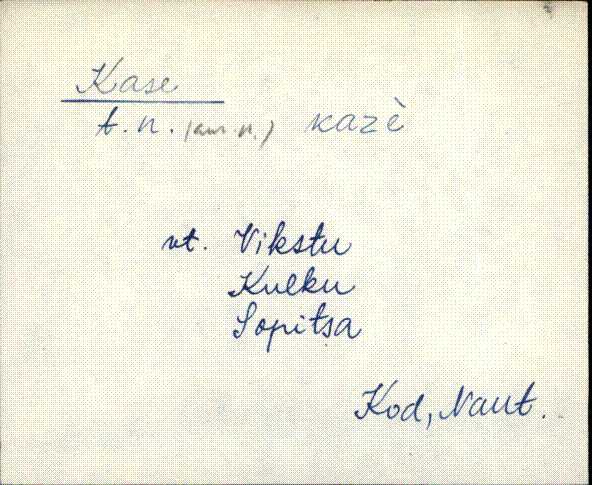 Kase
t. n. (am. n.) kazè
vt. Vikstu
Kulku
Sopitsa
Kod, Naut.